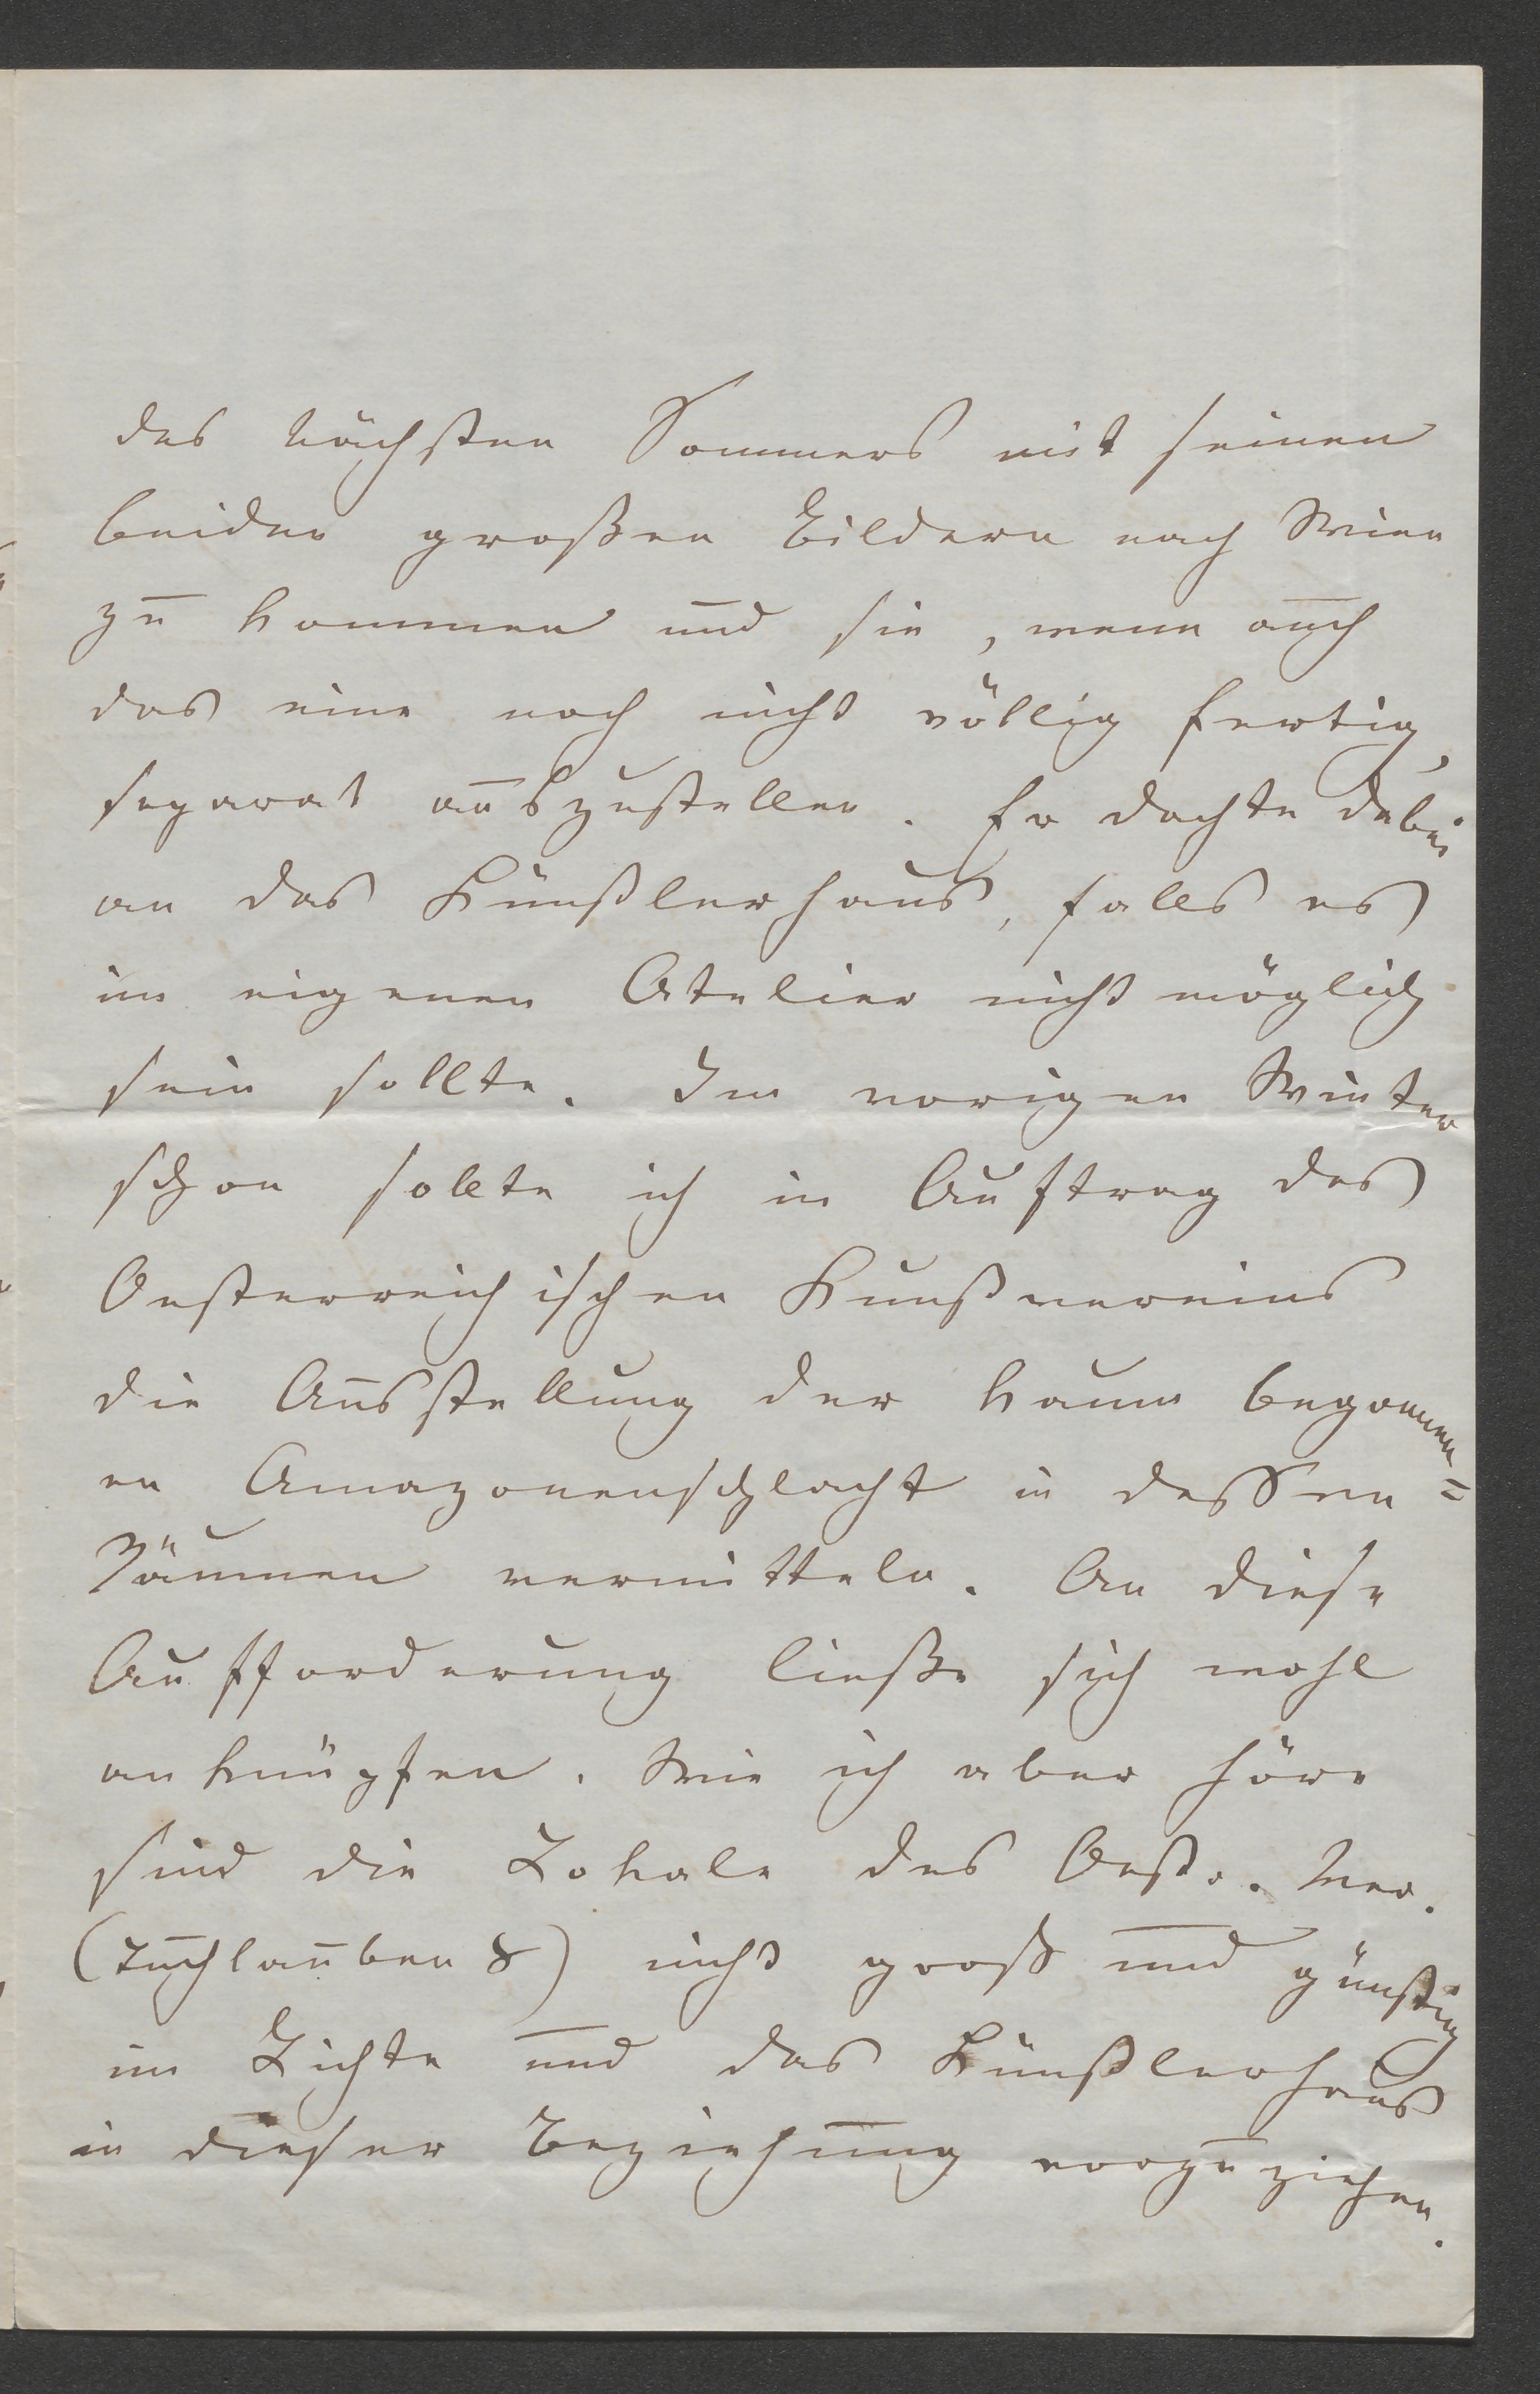 des nächsten Sommers mit seinen
beiden großen Bildern nach Wien
zu kommen und sie, wenn auch
das eine noch nicht völlig fertig,
separat auszustellen. Er dachte dabei
an das Künstlerhaus, falls es
im eigenen Atelier nicht möglich
sein sollte. Im vorigen Winter
schon sollte ich im Auftrag des
Oesterreichischen Kunstvereins
die Ausstellung der kaum begonnen=
en Amazonenschlacht in dessen =
Räumen vermitteln. An diese
Aufforderung ließe sich wohl
anknüpfen. Wie ich aber höre
sind die Lokale des Oestr. Ver.
(Tuchlauben 8) nicht groß und günstig
im Lichte und das Künstlerhaus
in dieser Beziehung vorzuziehen.